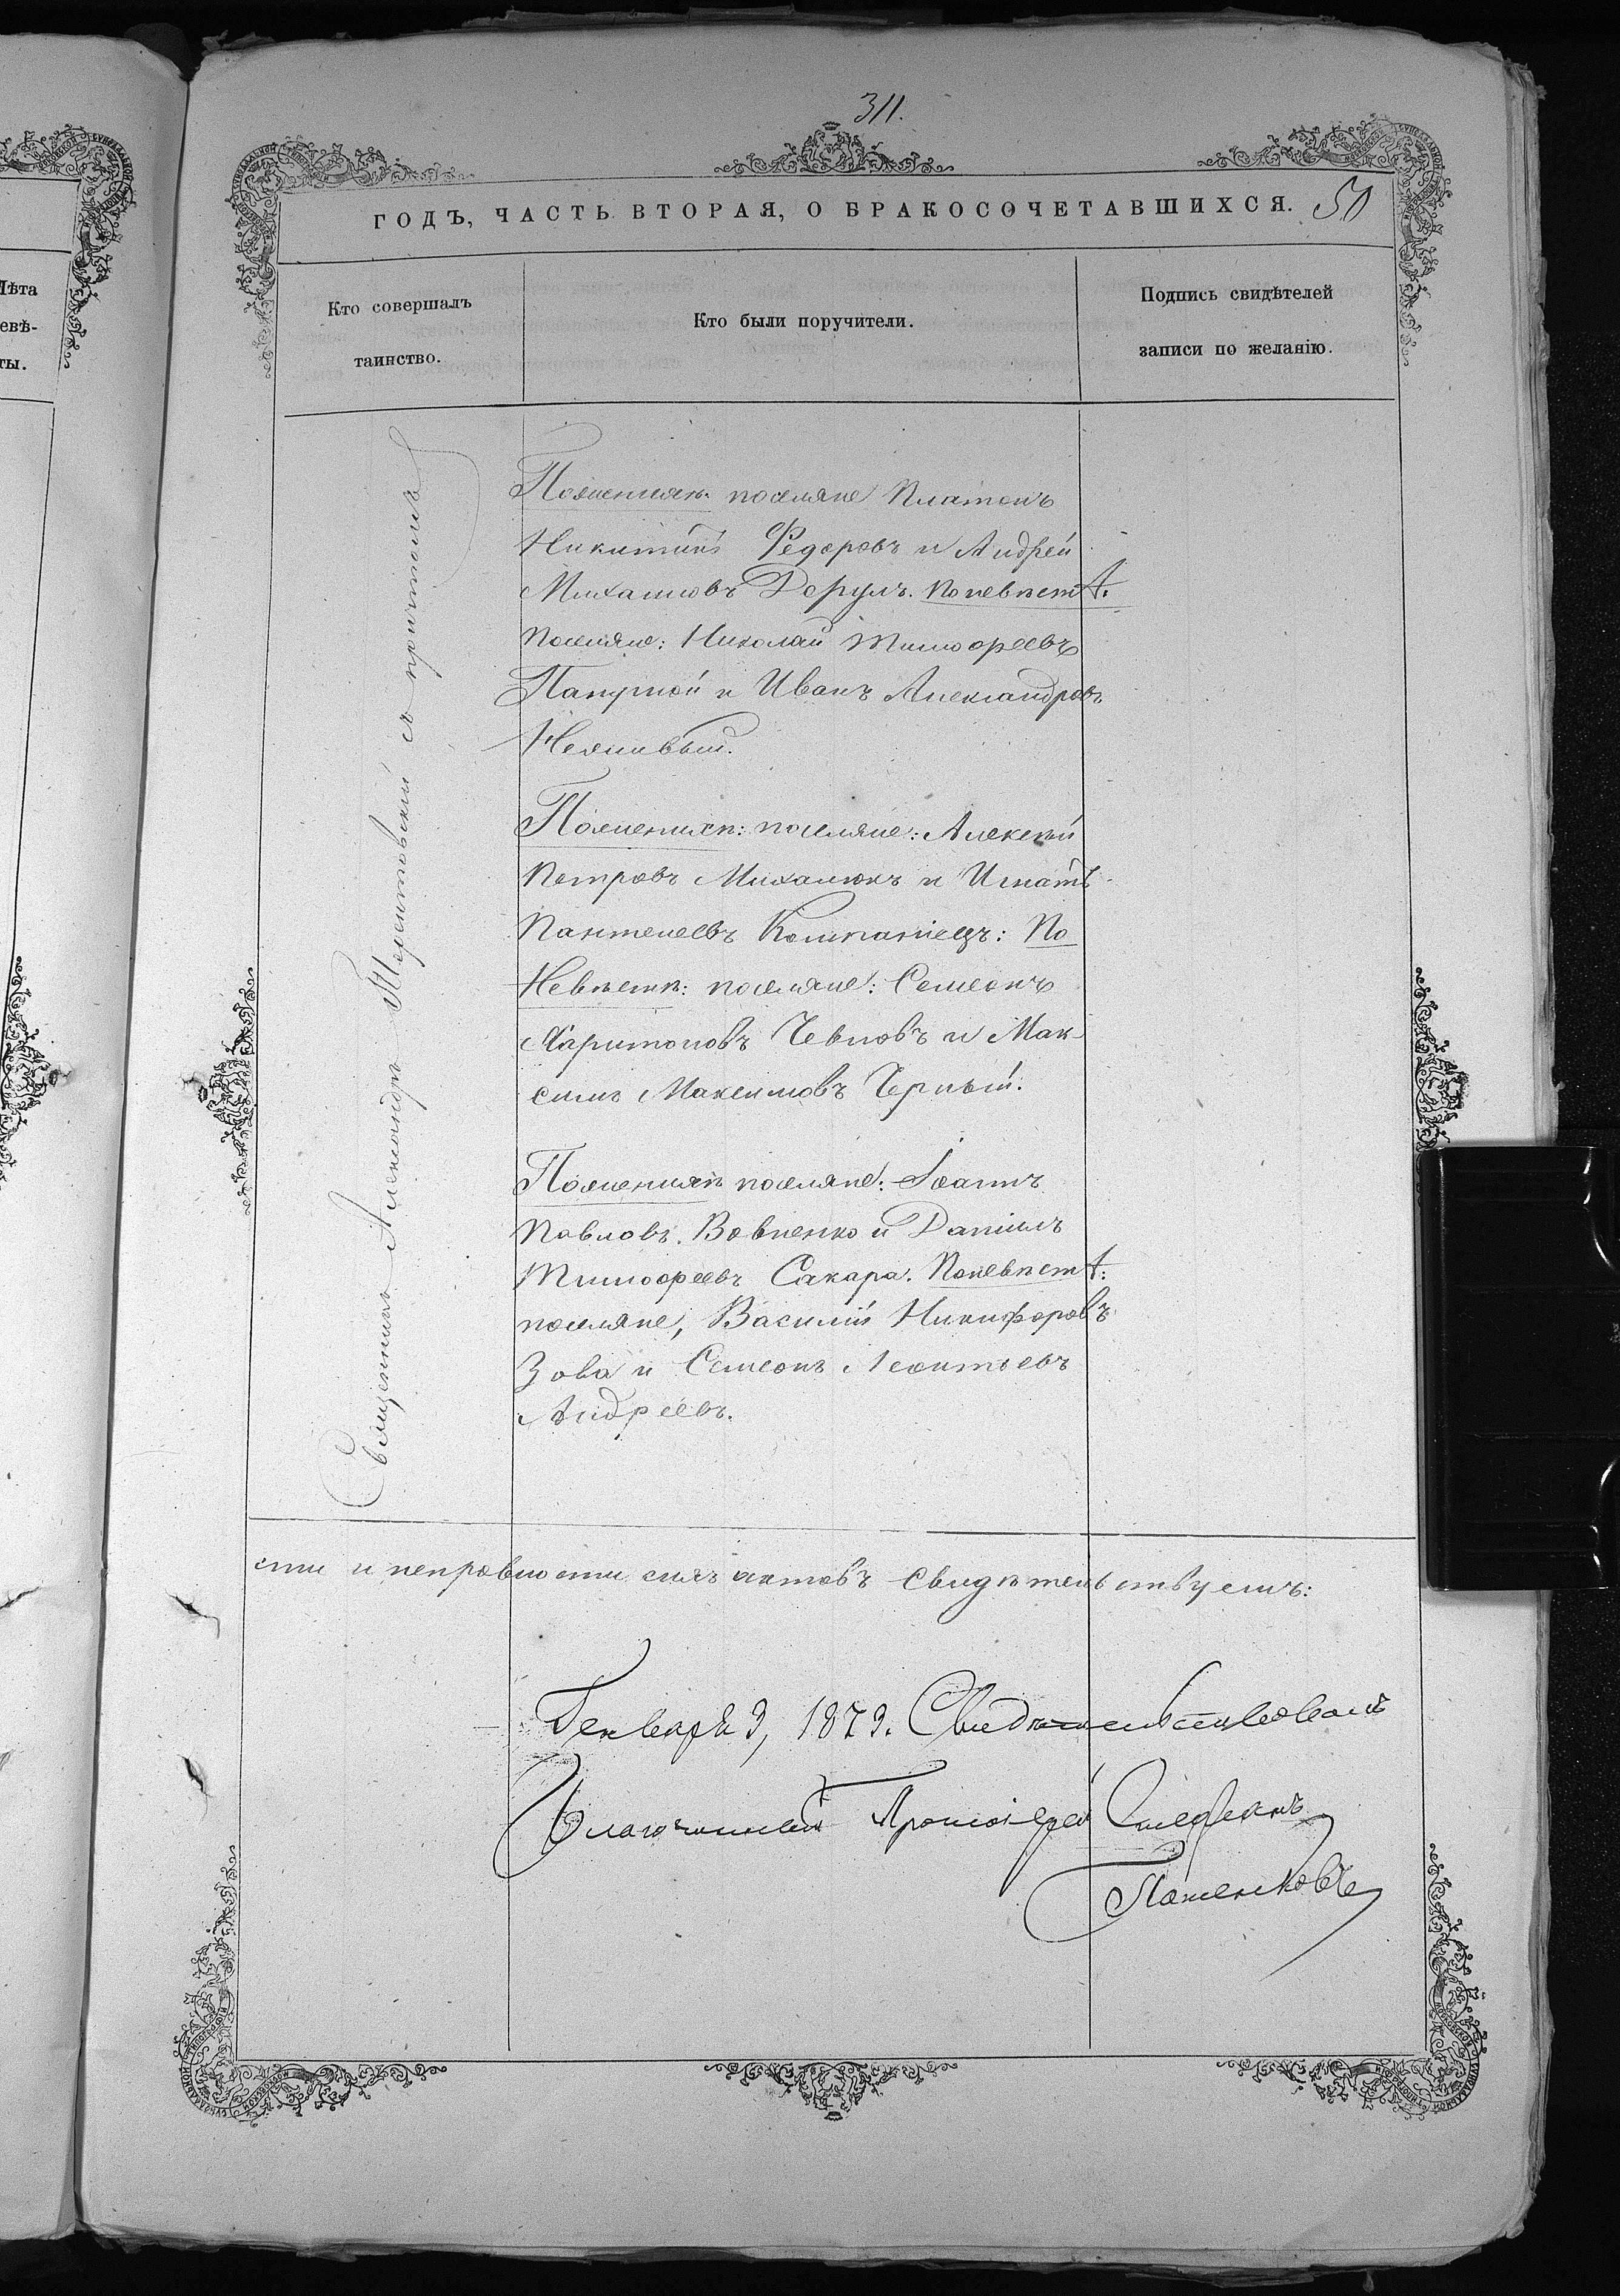 311.
ГОДЪ, ЧАСТЬ ВТОРАЯ, О БРАКОСОЧЕТАВШИХСЯ. 50
Лѣта
евѣ-
ты.
Кто совершалъ
таинство.
Кто были поручители.
Подпись свидѣтелей
записи по желанію.
Священникъ Александръ Терентовскій съ причтомъ
По женихѣ поселяне Платонъ
Никитинъ Федоровъ и Андрей
Михаиловъ Дорулъ. По невѣстѣ.
поселяне: Николай Тимофеевъ
Папуной и Иванъ Александровъ
По женихѣ: поселяне: Алексѣй
Петровъ Михалюкъ и Игнатъ
Пантелеевъ Компаніецъ: По
Невѣстѣ: поселяне: Семеонъ
Харитоновъ Човновъ и Мак-
симъ Максимовъ Черный.
По женихѣ поселяне: Іоаннъ
Павловъ. Вовненко и Даніилъ
Тимофеевъ Сакара. По невѣстѣ:
поселяне, Василій Никифоровъ
Зова и Семеонъ Леонтьевъ
Андреевъ.
сти и исправности сихъ актовъ свидѣтельствуемъ:
Генваря 9, 1879. Свидѣтельствовалъ
Благочинный Протоіерей